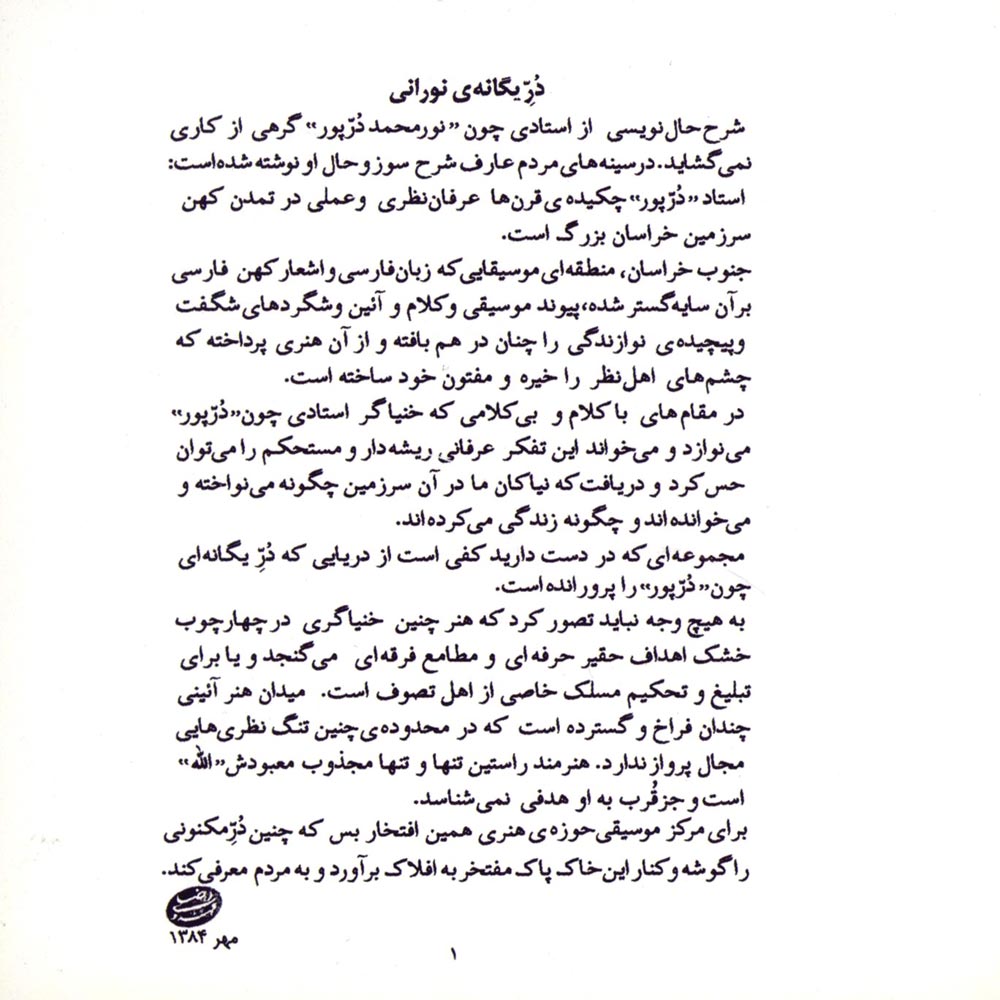 دُرِّ یگانه‌ی نورانی
شرح حال‌نویسی از استادی چون «نورمحمد دُرّپور» گرهی از کاری
نمی‌گشاید. در سینه‌های مردم عارف شرح سوز و حال او نوشته شده‌است:
استاد «دُرّپور» چکیده‌ی قرن‌ها عرفان نظری و عملی در تمدن کهن
سرزمین خراسان بزرگ است.
جنوب خراسان، منطقه‌ای موسیقایی که زبان فارسی و اشعار کهن فارسی
بر آن سایه‌گستر شده، پیوند موسیقی و کلام و آئین و شگردهای شگفت
و پیچیده‌ی نوازندگی را چنان در هم بافته و از آن هنری پرداخته که
چشم‌های اهل نظر را خیره و مفتون خود ساخته است.
در مقام‌های با کلام و بی‌کلامی که خنیاگر استادی چون «دُرّپور»
می‌نوازد و می‌خواند این تفکر عرفانی ریشه‌دار و مستحکم را می‌توان
حس کرد و دریافت که نیاکان ما در آن سرزمین چگونه می‌نواخته و
می‌خوانده‌اند و چگونه زندگی می‌کرده‌اند.
مجموعه‌ای که در دست دارید کفی است از دریایی که دُرِّ یگانه‌ای
چون «دُرّپور» را پرورانده است.
به هیچ وجه نباید تصور کرد که هنر چنین خنیاگری در چهارچوب
خشک اهداف حقیر حرفه‌ای و مطامع فرقه‌ای می‌گنجد و یا برای
تبلیغ و تحکیم مسلک خاصی از اهل تصوف است. میدان هنر آئینی
چندان فراخ و گسترده است که در محدوده‌ی چنین تنگ نظری‌هایی
مجال پرواز ندارد. هنرمند راستین تنها و تنها مجذوب معبودش «الله»
است و جز قُرب به او هدفی نمی‌شناسد.
برای مرکز موسیقی حوزه‌ی هنری همین افتخار بس که چنین دُرِّ مکنونی
را گوشه و کنار این خاک پاک مفتخر به افلاک برآورد و به مردم معرفی کند.
مهر ۱۳۸۴
۱